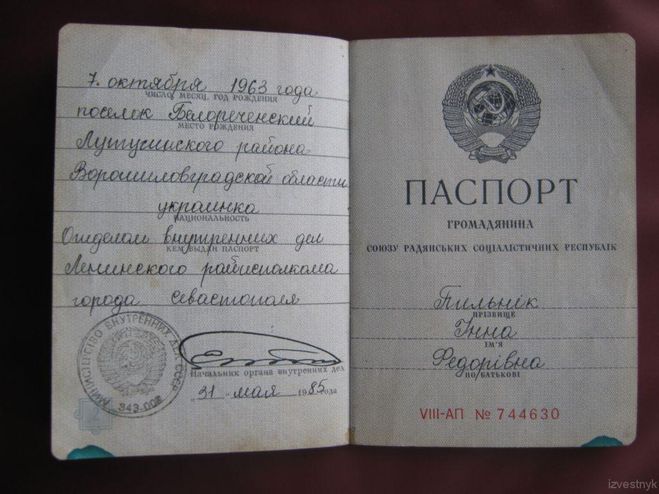 7. октября 1963 года
ЧИСЛО, МЕСЯЦ, ГОД РОЖДЕНИЯ
поселок Белореченский
МЕСТО РОЖДЕНИЯ
Лутугинского района
Ворошиловградской области
украинка
НАЦИОНАЛЬНОСТЬ
Отделом внутренних дел
КЕМ ВЫДАН ПАСПОРТ
Ленинского райисполкома
города Севастополя
МИНИСТЕРСТВО ВНУТРЕННИХ ДЕЛ СССР
343-002
Начальник органа внутренних дел
"31" мая 1985 года
ПАСПОРТ
ГРОМАДЯНИНА
СОЮЗУ РАДЯНСЬКИХ СОЦІАЛІСТИЧНИХ РЕСПУБЛІК
Пильнік
ПРІЗВИЩЕ
Інна
ІМ'Я
Федорівна
ПО БАТЬКОВІ
VIII-АП № 744630
izvestnyk